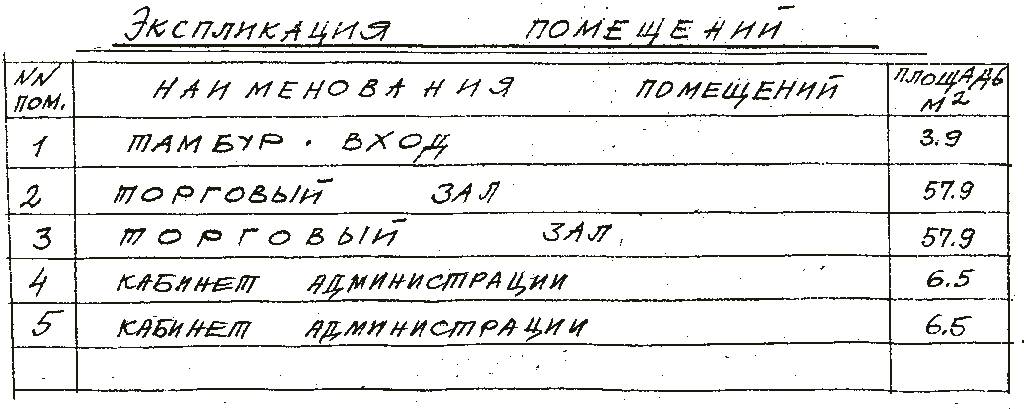 ЭКСПЛИКАЦИЯ ПОМЕЩЕНИЙ
NN ПОМ. НАИМЕНОВАНИЯ ПОМЕЩЕНИЙ ПЛОЩАДЬ М2
1 ТАМБУР. ВХОД 3.9
2 ТОРГОВЫЙ ЗАЛ 57.9
3 ТОРГОВЫЙ ЗАЛ 57.9
4 КАБИНЕТ АДМИНИСТРАЦИИ 6.5
5 КАБИНЕТ АДМИНИСТРАЦИИ 6.5